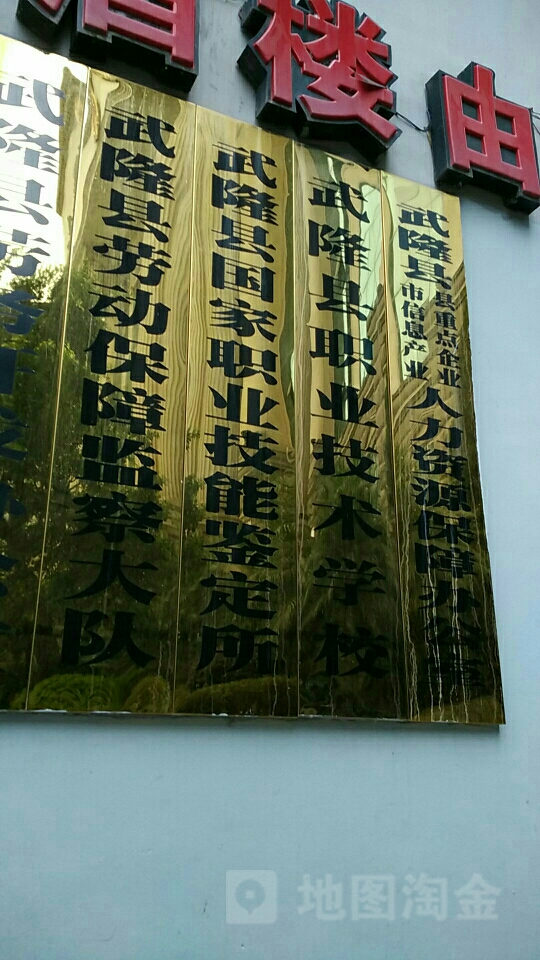 酒楼由
武隆县劳务开发办公室
武隆县劳动保障监察大队
武隆县国家职业技能鉴定所
武隆县职业技术学校
武隆县县重点企业市信息产业人力资源保障办公室
地图淘金